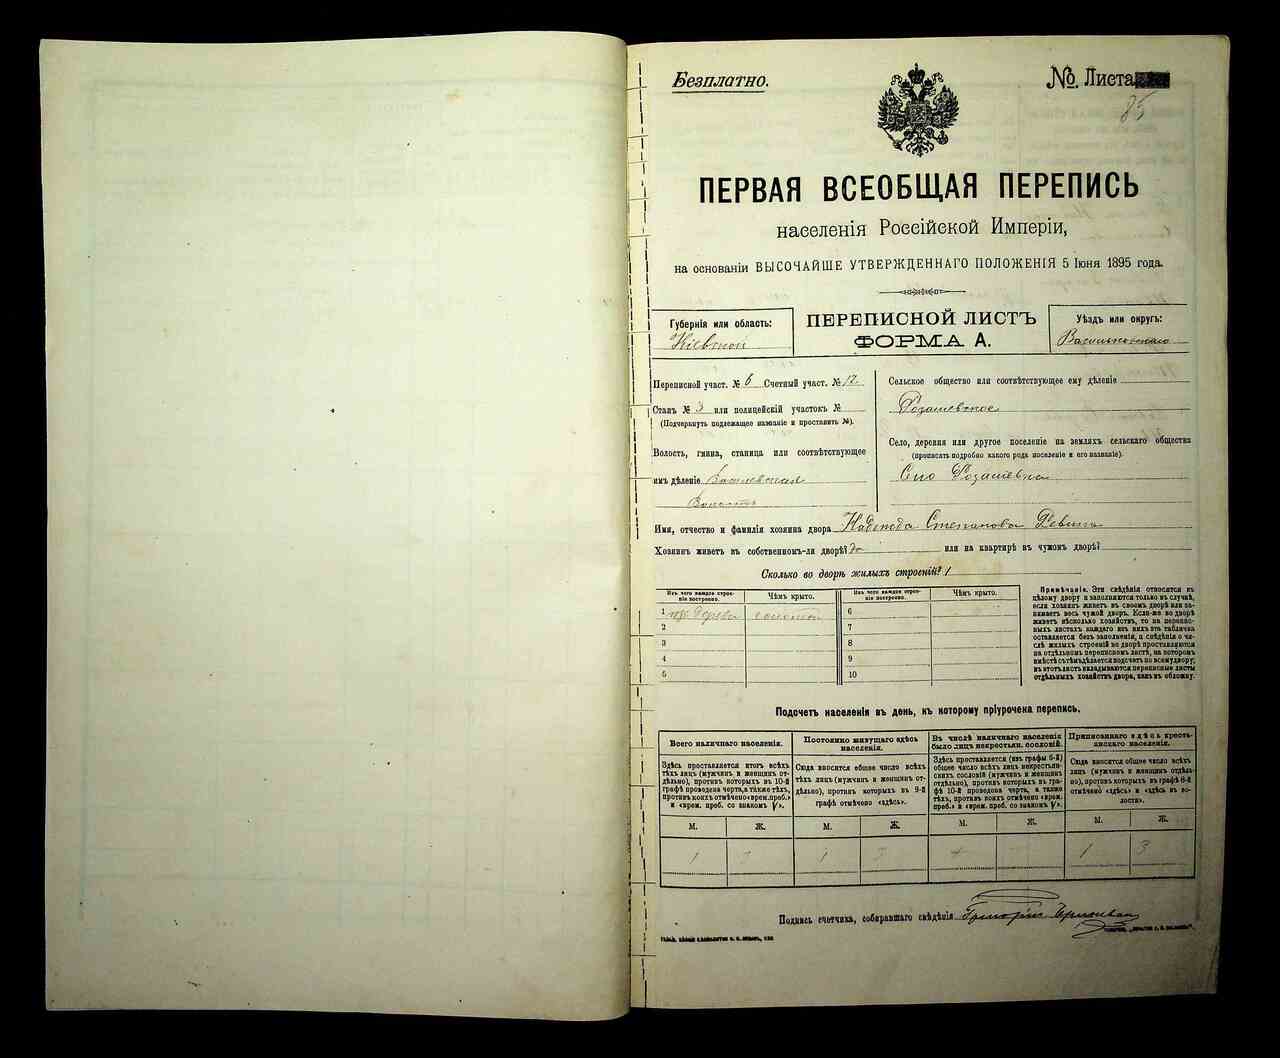 Безплатно.
№ Листа
85
ПЕРВАЯ ВСЕОБЩАЯ ПЕРЕПИСЬ
населенія Россійской Имперіи,
на основаніи ВЫСОЧАЙШЕ УТВЕРЖДЕННАГО ПОЛОЖЕНІЯ 5 Іюня 1895 года.
Губернія или область:
Кіевской
ПЕРЕПИСНОЙ ЛИСТЪ
ФОРМА А.
Уѣздъ или округъ:
Васильковскаго
Переписной участ. № 6 Счетный участ. № 12.
Станъ № 3 или полицейскій участокъ №
(Подчеркнуть подлежащее названіе и проставить №).
Волость, гмина, станица или соотвѣтствующее
имъ дѣленіе
Волость
Сельское общество или соотвѣтствующее ему дѣленіе
Розалевское
Село, деревня или другое поселеніе на земляхъ сельскаго общества
(прописать подробно какого рода поселеніе и его названіе).
Село
Имя, отчество и фамилія хозяина двора Надежда Степанова
Хозяинъ живетъ въ собственномъ-ли дворѣ? да или на квартирѣ въ чужом дворѣ?
Сколько во дворѣ жилыхъ строеній? 1
Изъ чего каждое строеніе построено. Чѣмъ крыто. Изъ чего каждое строеніе построено. Чѣмъ крыто.
1 дерева соломой 6
2 7
3 8
4 9
5 10
Примѣчаніе. Эти свѣдѣнія относятся къ
цѣлому двору и заполняются только въ случаѣ,
если хозяинъ живетъ въ своемъ дворѣ или занимаетъ
весь чужой дворъ. Если-же во дворѣ
живетъ нѣсколько хозяйствъ, то на переписныхъ
листахъ каждаго изъ нихъ эта табличка
оставляется безъ заполненія, а свѣдѣнія о числѣ
жилыхъ строеній во дворѣ проставляются
на отдѣльномъ переписномъ листѣ, на которомъ
вмѣстѣ съ тѣмъ дѣлается подсчетъ по всему двору;
въ этотъ листъ вкладываются переписные листы
отдѣльныхъ хозяйствъ двора, какъ въ обложку.
Подсчетъ населенія въ день, къ которому пріурочена перепись.
Всего наличнаго населенія.
Здѣсь проставляется итогъ всѣхъ
тѣхъ лицъ (мужчинъ и женщинъ отдѣльно),
противъ которыхъ въ 10-й
графѣ проведена черта, а также тѣхъ,
противъ коихъ отмѣчено «врем. преб.»
и «врем. преб. со знакомъ V».
Постоянно живущаго здѣсь
населенія.
Сюда вносится общее число всѣхъ
тѣхъ лицъ (мужчинъ и женщинъ отдѣльно),
противъ которыхъ въ 9-й
графѣ отмѣчено «здѣсь».
Въ числѣ наличнаго населенія
было лицъ некрестьян. сословій.
Здѣсь проставляется (изъ графы 6-й)
общее число всѣхъ лицъ некрестьянскихъ
сословій (мужчинъ и женщинъ
отдѣльно), противъ которыхъ въ графѣ
10-й проведена черта, а также
тѣхъ, противъ коихъ отмѣчено «врем.
преб.» и «врем. преб. со знакомъ V».
Приписаннаго здѣсь крестьянскаго
населенія.
Сюда вносится общее число всѣхъ
лицъ (мужчинъ и женщинъ отдѣльно),
противъ которыхъ въ графѣ 8-й
отмѣчено «здѣсь» и «здѣсь въ волости».
М. Ж. М. Ж. М. Ж. М. Ж.
1 3 1 3 1 3
Подпись счетчика, собиравшаго свѣдѣнія Григорій